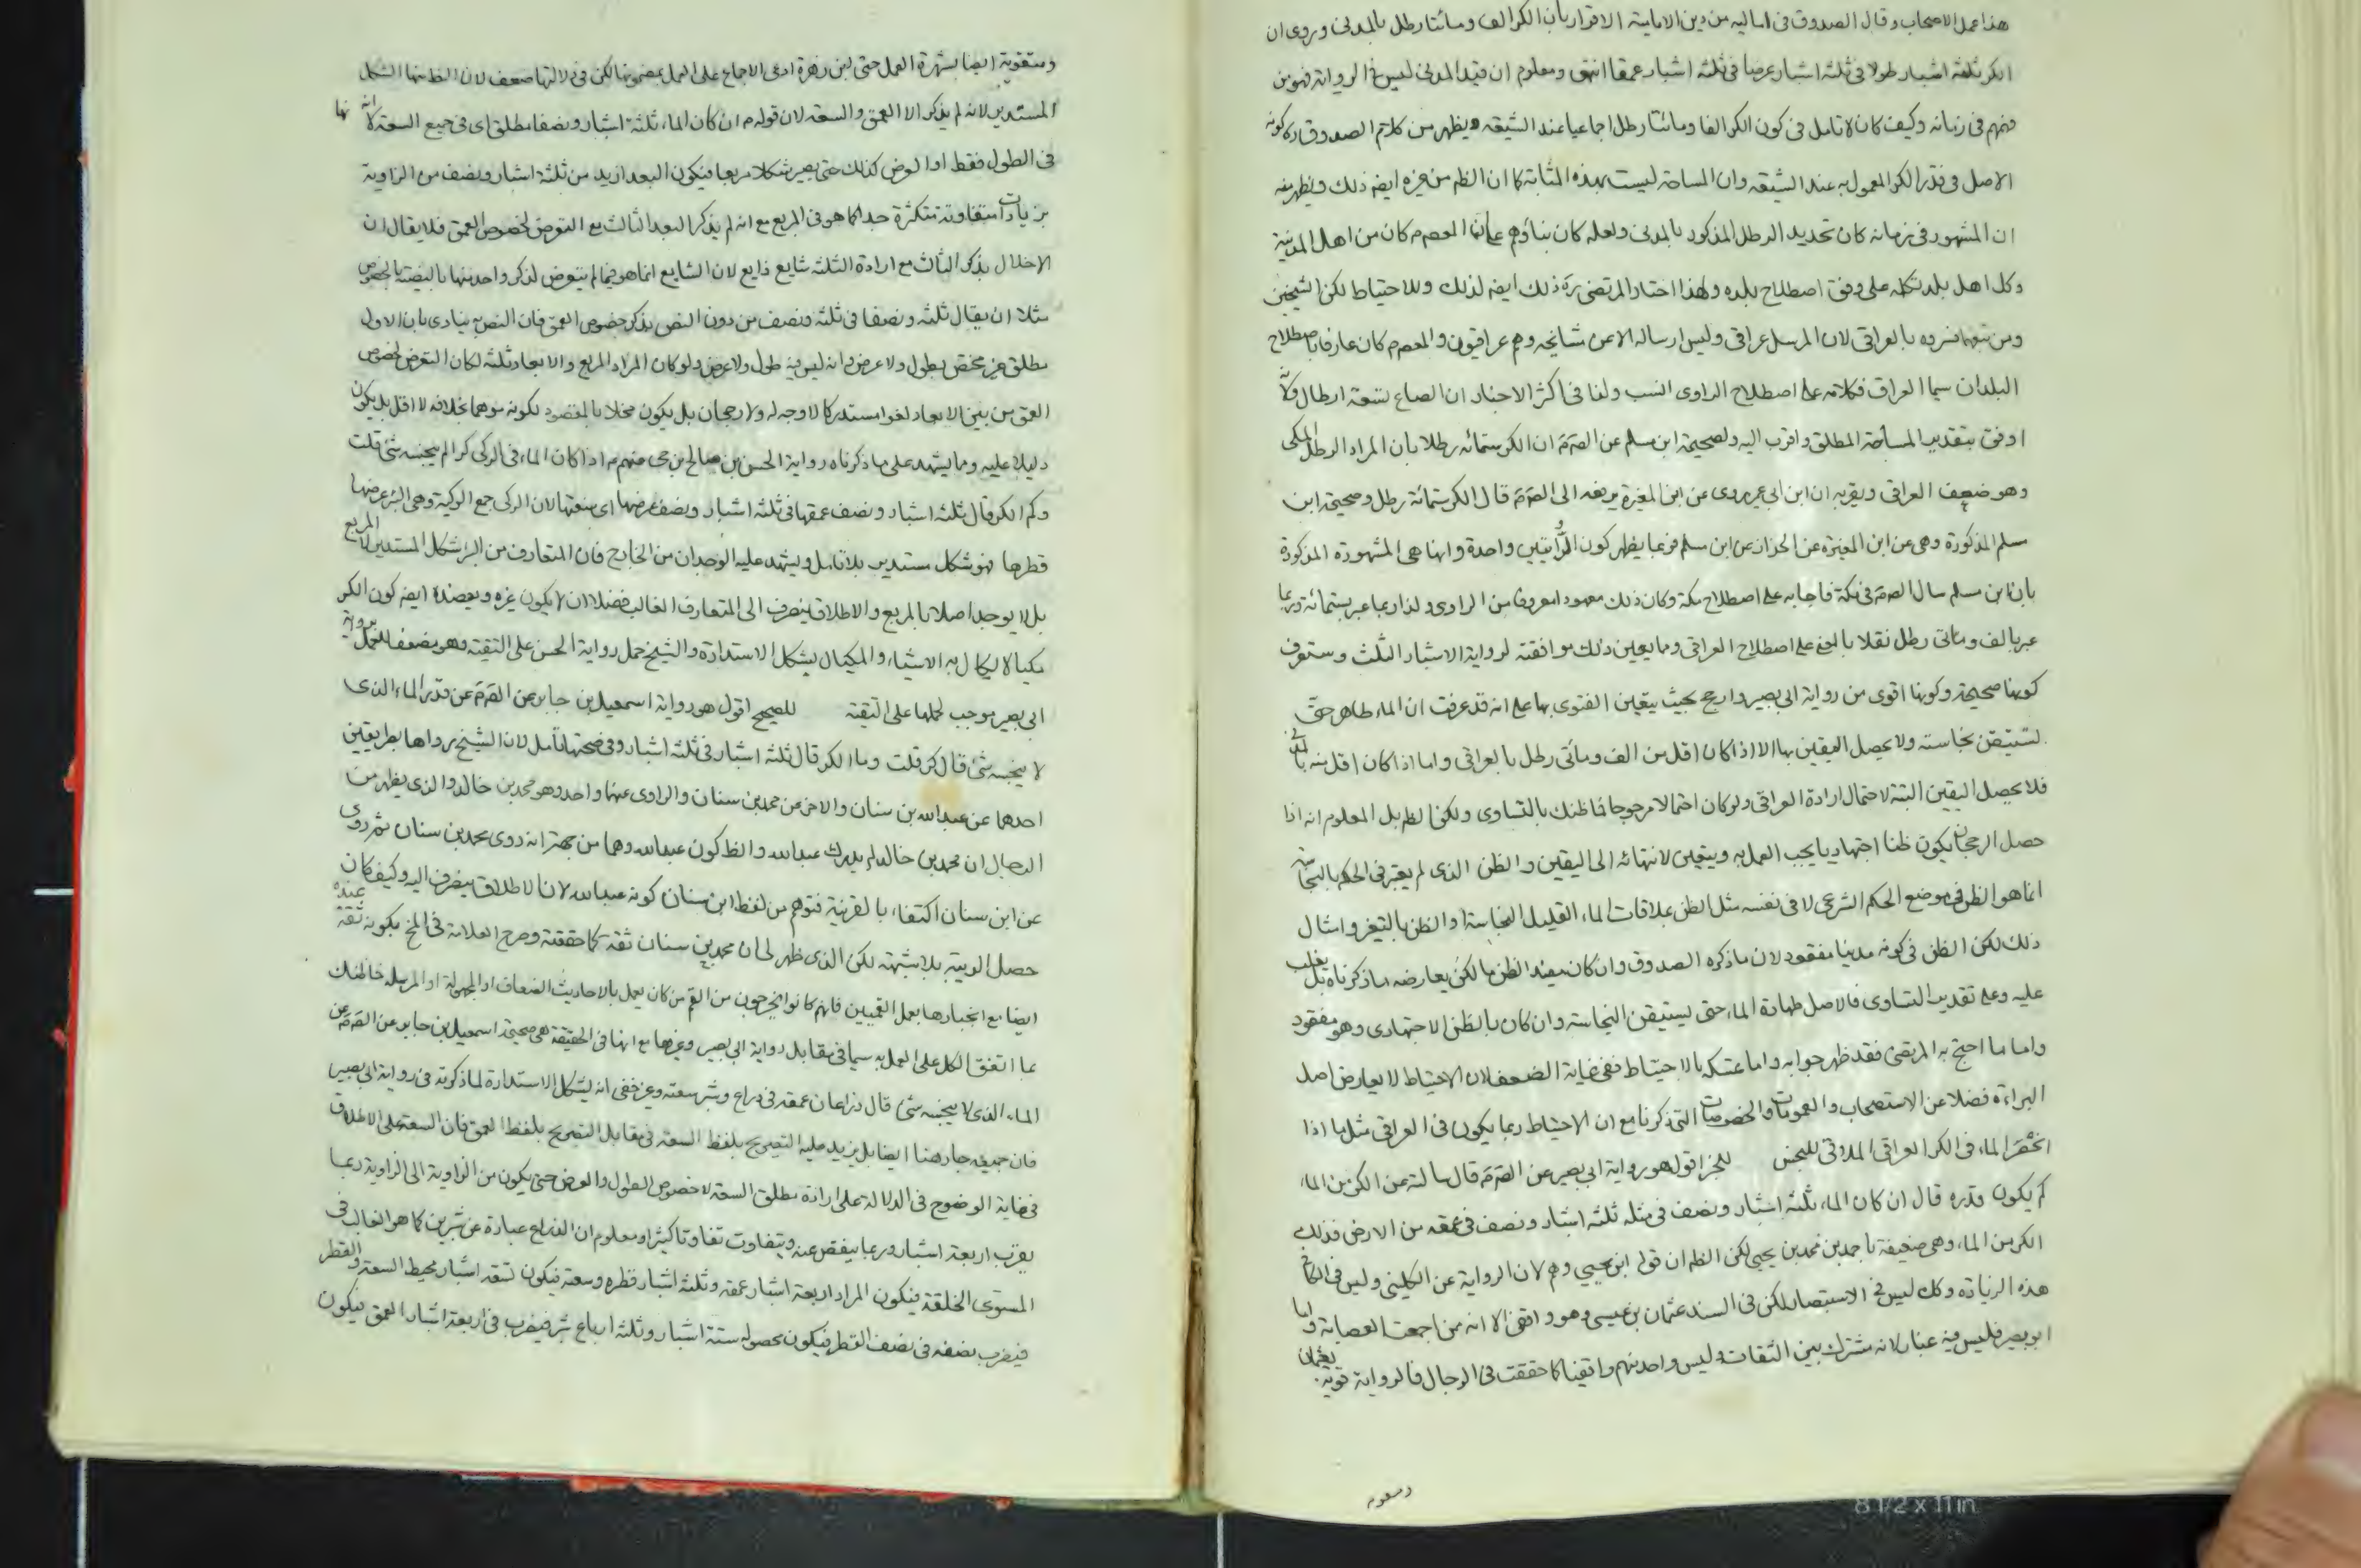 هذا عمل الاصحاب وقال الصدوق فى اماليه من دين الامامية الاقرار بان الكر الف ومائتا رطل بالمدنى وروى ان
الكر ثلثة اشبار طولا فى ثلثة اشبار عرضا فى ثلثة اشبار عمقا انتهى ومعلوم ان قيد المدنى ليس فى الرواية فهو من
فهم فى زمانه وكيف كان لا تامل فى كون الكر الفا ومائتا رطل اجماعيا عند الشيعه ويظهر من كلام الصدوق ره كونه
الاصل فى قدر الكر المعمول به عند الشيعه وان المساحة ليست بهذه المثابة كما ان الظم من غيره ايضا ذلك ويظهر منه
ان المشهور فى زمانه كان تحديد الرطل المذكور بالمدنى ولعله كان بناؤهم على ان المعصوم كان من اهل المدينة
وكل اهل بلد تكلمه على وفق اصطلاح بلده ولهذا اختار المرتضى ره ذلك ايضا لذلك وللاحتياط لكن الشيخين
ومن تبعهما فسروه بالعراقى لان المرسل عراقى وليس ارساله الا عن مشايخه وهم عراقيون والمعصوم كان عارفا باصطلاح
البلدان سيما العراق فكلامه على اصطلاح الراوى انسب ولنا فى اكثر الاخبار ان الصاع تسعة ارطال ولانه
اوفق بتقدير المساحة المطلق واقرب اليه ولصحيحة ابن مسلم عن الصم ان الكر ستمائه رطلا بان المراد الرطل المكى
وهو ضعف العراقى ويقربه ان ابن ابى عمير روى عن ابن المغيرة يرفعه الى الصم قال الكر ستمائة رطل وصحيحة ابن
مسلم المذكورة وهى عن ابن المغيرة عن الخزاز عن ابن مسلم فربما يظهر كون الروايتين واحدة وانها هى المشهورة المذكورة
بان ابن مسلم سال الصم فى مكة فاجابه على اصطلاح مكة وكان ذلك معهودا معروفا من الراوى ولذا ربما عبر بستمائة وربما
عبر بالف ومائتى رطل نقلا بالمعنى على اصطلاح العراقى وما يعين ذلك موافقته لرواية الاشبار الثلث وستعرف
كونها صحيحة وكونها اقوى من رواية ابى بصير وارجح بحيث يتعين الفتوى بها على انه قد عرفت ان الماء طاهر حتى
تستيقن نجاسته ولا يحصل اليقين بها الا اذا كان اقل من الف ومائتى رطل بالعراقى واما اذا كان اقل منه بالمدنى
فلا يحصل اليقين البتة لاحتمال ارادة العراقى ولو كان احتمالا مرجوحا فما ظنك بالتساوى ولكن الظم بل المعلوم انه اذا
حصل الرجحان يكون ظنا اجتهاديا يجب العمل به ويتعين لانتهائه الى اليقين والظن الذى لم يعتبر فى الحكم بالنجاسة
انما هو الظن فى موضع الحكم الشرعى لا فى نفسه مثل الظن بملاقات الماء القليل النجاسة او الظن بالتغير وامثال
ذلك لكن الظن فى كونه مدنيا مفقود لان ما ذكره الصدوق وان كان مفيد الظن ما لكن يعارضه ما ذكرناه بل يغلب
عليه وعلى تقدير التساوى فالاصل طهارة الماء حتى يستيقن النجاسة وان كان بالظن الاجتهادى وهو مفقود
واما ما احتج به المرتضى فقد ظهر جوابه واما تمسكه بالاحتياط ففى غاية الضعف لان الاحتياط لا يعارض اصل
البراءة فضلا عن الاستصحاب والعمومات والخصوصات التى ذكرنا مع ان الاحتياط ربما يكون فى العراقى مثل ما اذا
انحصر الماء فى الكر العراقى الملاقى للنجس للخبر اقول هو رواية ابى بصير عن الصم قال سالته عن الكر من الماء
كم يكون قدره قال ان كان الماء ثلثة اشبار ونصف فى مثله ثلثة اشبار ونصف فى عمقه من الارض فذلك
الكر من الماء وهى ضعيفة باحمد بن محمد بن يحيى لكن الظم ان قوله ابن يحيى وهم لان الرواية عن الكلينى وليس فى الكافى
هذه الزيادة وكك ليس فى الاستبصار لكن فى السند عثمان بن عيسى وهو واقفى الا انه ممن اجمعت العصابة واما
ابو بصير فليس فيه عبار لانه مشترك بين الثقات وليس واحد منهم واقفيا كما حققت فى الرجال فالرواية قوية بعثمان
ومقوية
ومتقوية ايضا بشهرة العمل حتى ابن زهرة ادعى الاجماع على العمل بمضمونها لكن فى دلالتها ضعف لان الظ منها الشكل
المستدير لانه لم يذكر الا العمق والسعة لان قوله م ان كان الماء ثلثة اشبار ونصفا مطلق اى فى جميع السعة لا انها
فى الطول فقط او العرض كذلك حتى يصير شكلا مربعا فيكون البعد ازيد من ثلثة اشبار ونصف من الزاوية
بزيادات متفاوتة متكثرة جدا كما هو فى المربع مع انه لم يذكر البعد الثالث مع التعرض لخصوص العمق فلا يقال ان
الاخلال بذكر الثالث مع ارادة الثلثة شايع ذايع لان الشايع انما هو فيما لم يتعرض لذكر واحد منها بالخصوص
مثلا ان يقال ثلثة ونصفا فى ثلثة ونصف من دون النص بذكر خصوص العمق فان النص به ينادى بان الاول
مطلق غير مختص بطول ولا عرض وانه ليس فيه طول ولا عرض ولو كان المراد المربع والابعاد ثلثة لكان التعرض لخصوص
العمق من بين الابعاد لغوا مستدركا لا وجه له ولا رجحان بل يكون مخلا بالمقصود لكونه موهما بخلافه لا اقل بل يكون
دليلا عليه ومما يشهد على ما ذكرناه رواية الحسن بن صالح بن حى عنهم م اذا كان الماء فى الركى كرا لم ينجسه شئ قلت
وكم الكر قال ثلثة اشبار ونصف عمقها فى ثلثة اشبار ونصف عرضها اى سعتها لان الركى جمع الركية وهى البئر عرضها
قطرها فهو شكل مستدير بلا تامل ويشهد عليه الوجدان من الخارج فان المتعارف من البئر الشكل المستدير لا المربع
بل لا يوجد اصلا بالمربع والاطلاق ينصرف الى المتعارف الغالب فضلا ان لا يكون غيره ويعضده ايضا كون الكر
مكيالا يكال به الاشياء والمكيال بشكل الاستدارة والشيخ حمل رواية الحسن على التقية وهو مضعف للعمل برواية
ابى بصير موجب لحملها على التقية للصحيح اقول هو رواية اسمعيل بن جابر عن الصم عن قدر الماء الذى
لا ينجسه شئ قال كر قلت وما الكر قال ثلثة اشبار فى ثلثة اشبار وفى صحتها تامل لان الشيخ رواها بطريقين
احدها عن عبد الله بن سنان والاخر عن محمد بن سنان والراوى عنهما واحد وهو محمد بن خالد والذى يظهر من
الرجال ان محمد بن خالد لم يدرك عبد الله والظ كون عبد الله وهما من جهة انه روى محمد بن سنان ثم روى
عن ابن سنان اكتفاء بالقرينة فتوهم من لفظ ابن سنان كونه عبد الله لان الاطلاق ينصرف اليه وكيف كان
حصل الريبة بلا شبهة لكن الذى ظهر لى ان محمد بن سنان ثقة كما حققته وصرح العلامة فى المخ بكونه ثقة عنده
ايضا مع انجبارها بعمل القميين فانهم كانوا يخرجون من القم من كان يعمل بالاحاديث الضعاف او المجهولة او المرسله فما ظنك
بما اتفق الكل على العمل به سيما فى مقابل رواية ابى بصير وغيرها مع انها فى الحقيقة هى صحيحة اسمعيل بن جابر عن الصم عن
الماء الذى لا ينجسه شئ قال ذراعان عمقه فى ذراع وشبر سعته وغير خفى انه بشكل الاستدارة لما ذكرته فى رواية ابى بصير
فان جميعه جار هنا ايضا بل يزيد عليه التصريح بلفظ السعة فى مقابل التصريح بلفظ العمق فان السعة على الاطلاق
فى غاية الوضوح فى الدلالة على ارادة مطلق السعة لا خصوص الطول والعرض حتى يكون من الزاوية الى الزاوية ربما
يقرب اربعة اشبار وربما ينقص عنه ويتفاوت تفاوتا كثيرا ومعلوم ان الذراع عبارة عن شبرين كما هو الغالب فى
المستوى الخلقة فيكون المراد اربعة اشبار عمقه وثلثة اشبار قطره وسعته فيكون تسعة اشبار محيط السعة والقطر
فيضرب نصفه فى نصف القطر فيكون محصوله ستة اشبار وثلثة ارباع شبر فيضرب فى اربعة اشبار العمق فيكون
8 1/2 x 11 in.